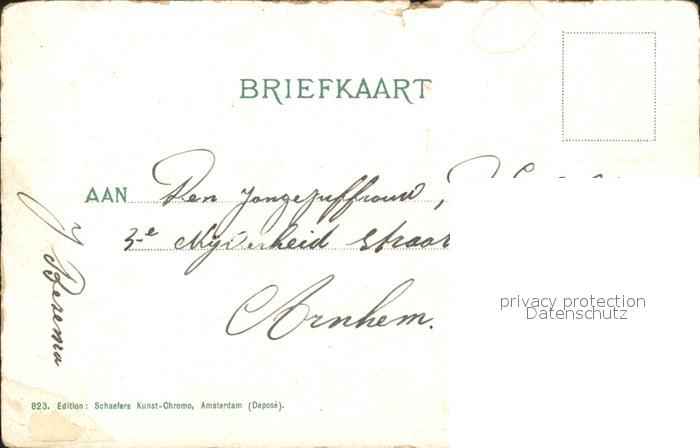 BRIEFKAART
AAN Den Jongejuffrouw,
3-e Nijverheid straat
Arnhem.
privacy protection
Datenschutz
J Besema
823. Edition: Schaefers Kunst-Chromo, Amsterdam (Deposé).